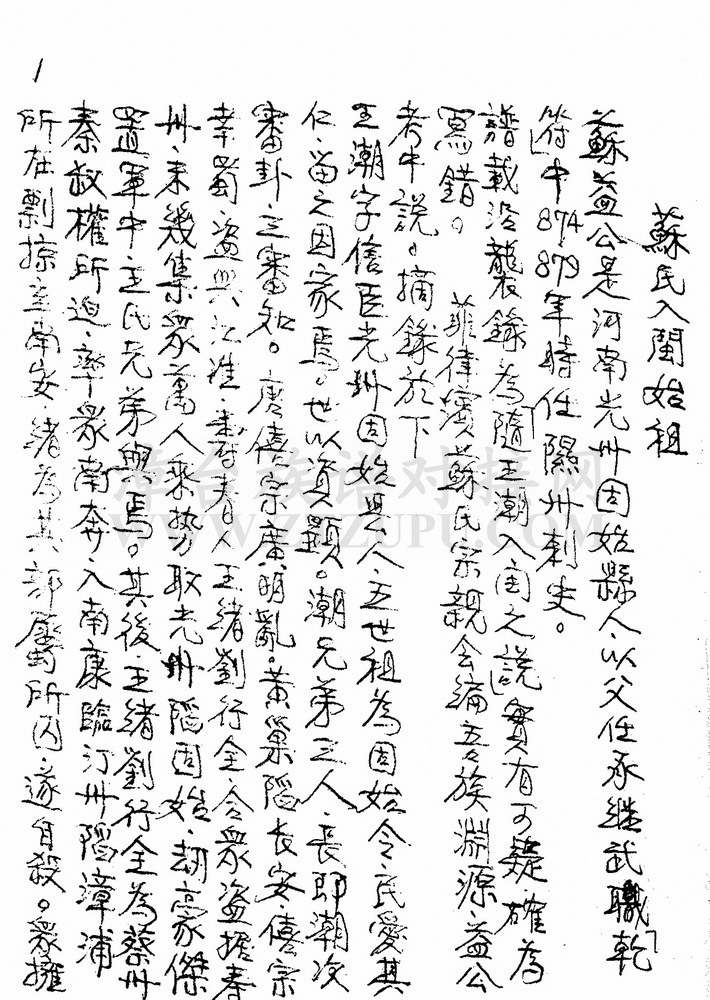 1
蘇氏入閩始祖
蘇益公是河南光州固始縣人、以父任承继武職「乾
符」中874 879年時任隰州刺史。
譜載沿襲錄為「隨王潮入闽之說」實有可疑、確為
寫錯。 菲律濱蘇氏宗親会编蘇族淵源、益公
考中說。摘錄於下
王潮字信臣光州固始县人、五世祖為固始令、民愛其
仁、留之因家焉。世以資顯。潮兄弟三人、長即潮次
審邽、三審知。唐僖宗廣明亂。黄巢陷長安、僖宗
幸蜀、盗興江淮、寿春人王緒劉行全合眾盗据寿
州、未幾集眾萬人乘势取光州陷固始、劫豪傑
置軍中、王氏兄弟與焉。其後王緒劉行全為蔡州
秦叔權所迫、率眾南奔、入南康臨汀州陷漳浦
所在剽掠、至南安、緒為其部属所囚、遂自殺。眾擁
漳台族谱对接网
WWW.ZTZUPU.COM